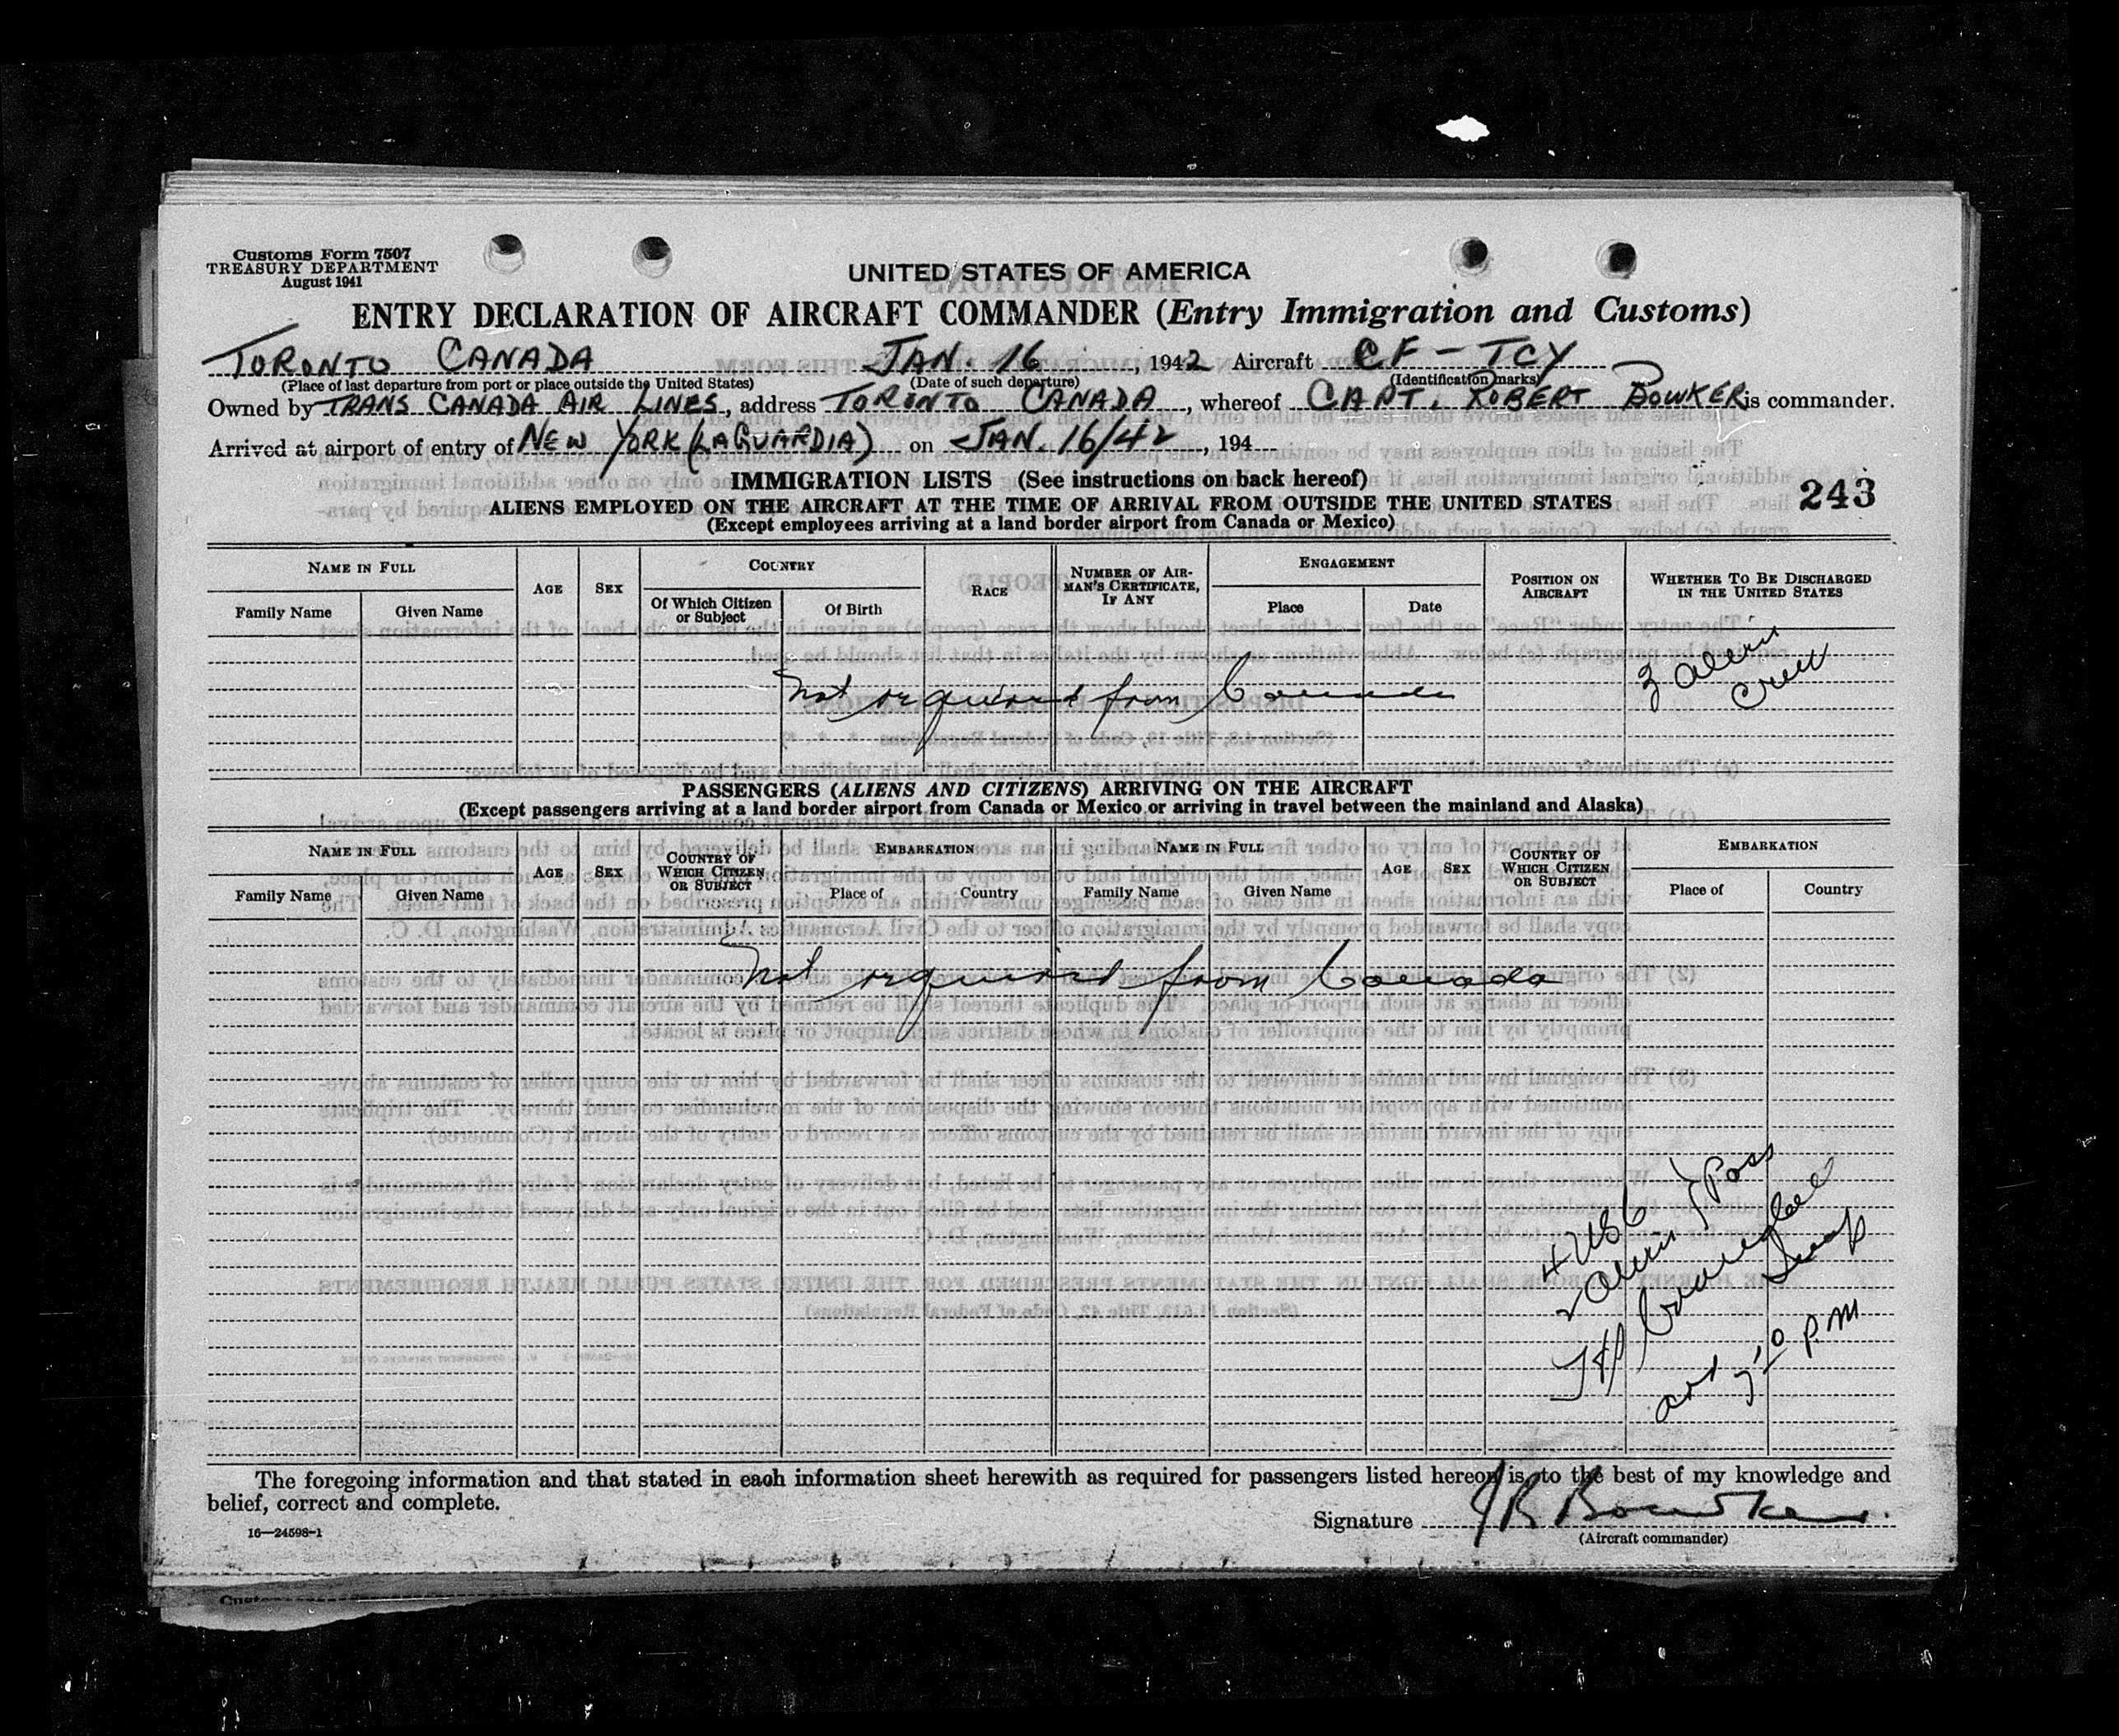 Customs Form 7507
TREASURY DEPARTMENT
August 1941
UNITED STATES OF AMERICA
ENTRY DECLARATION OF AIRCRAFT COMMANDER (Entry Immigration and Customs)
TORONTO CANADA JAN. 16, 1942 Aircraft CF-TCY
(Place of last departure from port or place outside the United States) (Date of such departure) (Identification marks)
Owned by TRANS CANADA AIR LINES, address TORONTO CANADA, whereof CAPT. ROBERT BOWKER is commander.
Arrived at airport of entry of NEW YORK (LAGUARDIA) on JAN. 16/42, 194
IMMIGRATION LISTS (See instructions on back hereof)
243
ALIENS EMPLOYED ON THE AIRCRAFT AT THE TIME OF ARRIVAL FROM OUTSIDE THE UNITED STATES
(Except employees arriving at a land border airport from Canada or Mexico)
NAME IN FULL AGE SEX COUNTRY RACE NUMBER OF AIRMAN'S CERTIFICATE, IF ANY ENGAGEMENT POSITION ON AIRCRAFT WHETHER TO BE DISCHARGED IN THE UNITED STATES
Family Name Given Name Of Which Citizen or Subject Of Birth Place Date
3 alien
crew
Not required from Canada
PASSENGERS (ALIENS AND CITIZENS) ARRIVING ON THE AIRCRAFT
(Except passengers arriving at a land border airport from Canada or Mexico or arriving in travel between the mainland and Alaska)
NAME IN FULL AGE SEX COUNTRY OF WHICH CITIZEN OR SUBJECT EMBARKATION NAME IN FULL AGE SEX COUNTRY OF WHICH CITIZEN OR SUBJECT EMBARKATION
Family Name Given Name Place of Country Family Name Given Name Place of Country
Not required from Canada
4 USC
2 alien } Pass
Insp
arr 7:10 P.M
The foregoing information and that stated in each information sheet herewith as required for passengers listed hereon is, to the best of my knowledge and
belief, correct and complete.
Signature JR Bowker.
16—24598-1
(Aircraft commander)